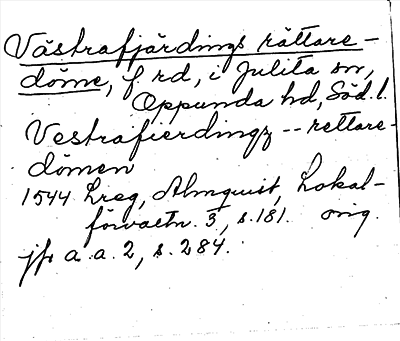 Västrafjärdings rättare-
döme, f rd, i Julita sn,
Oppunda hd, Söd. l.
Vestrafierdingz -- rettare-
dömen
1544 Lreg, Almquist, Lokal-
förvaltn. 3, s. 181. orig.
jfr a. a. 2, s. 284.